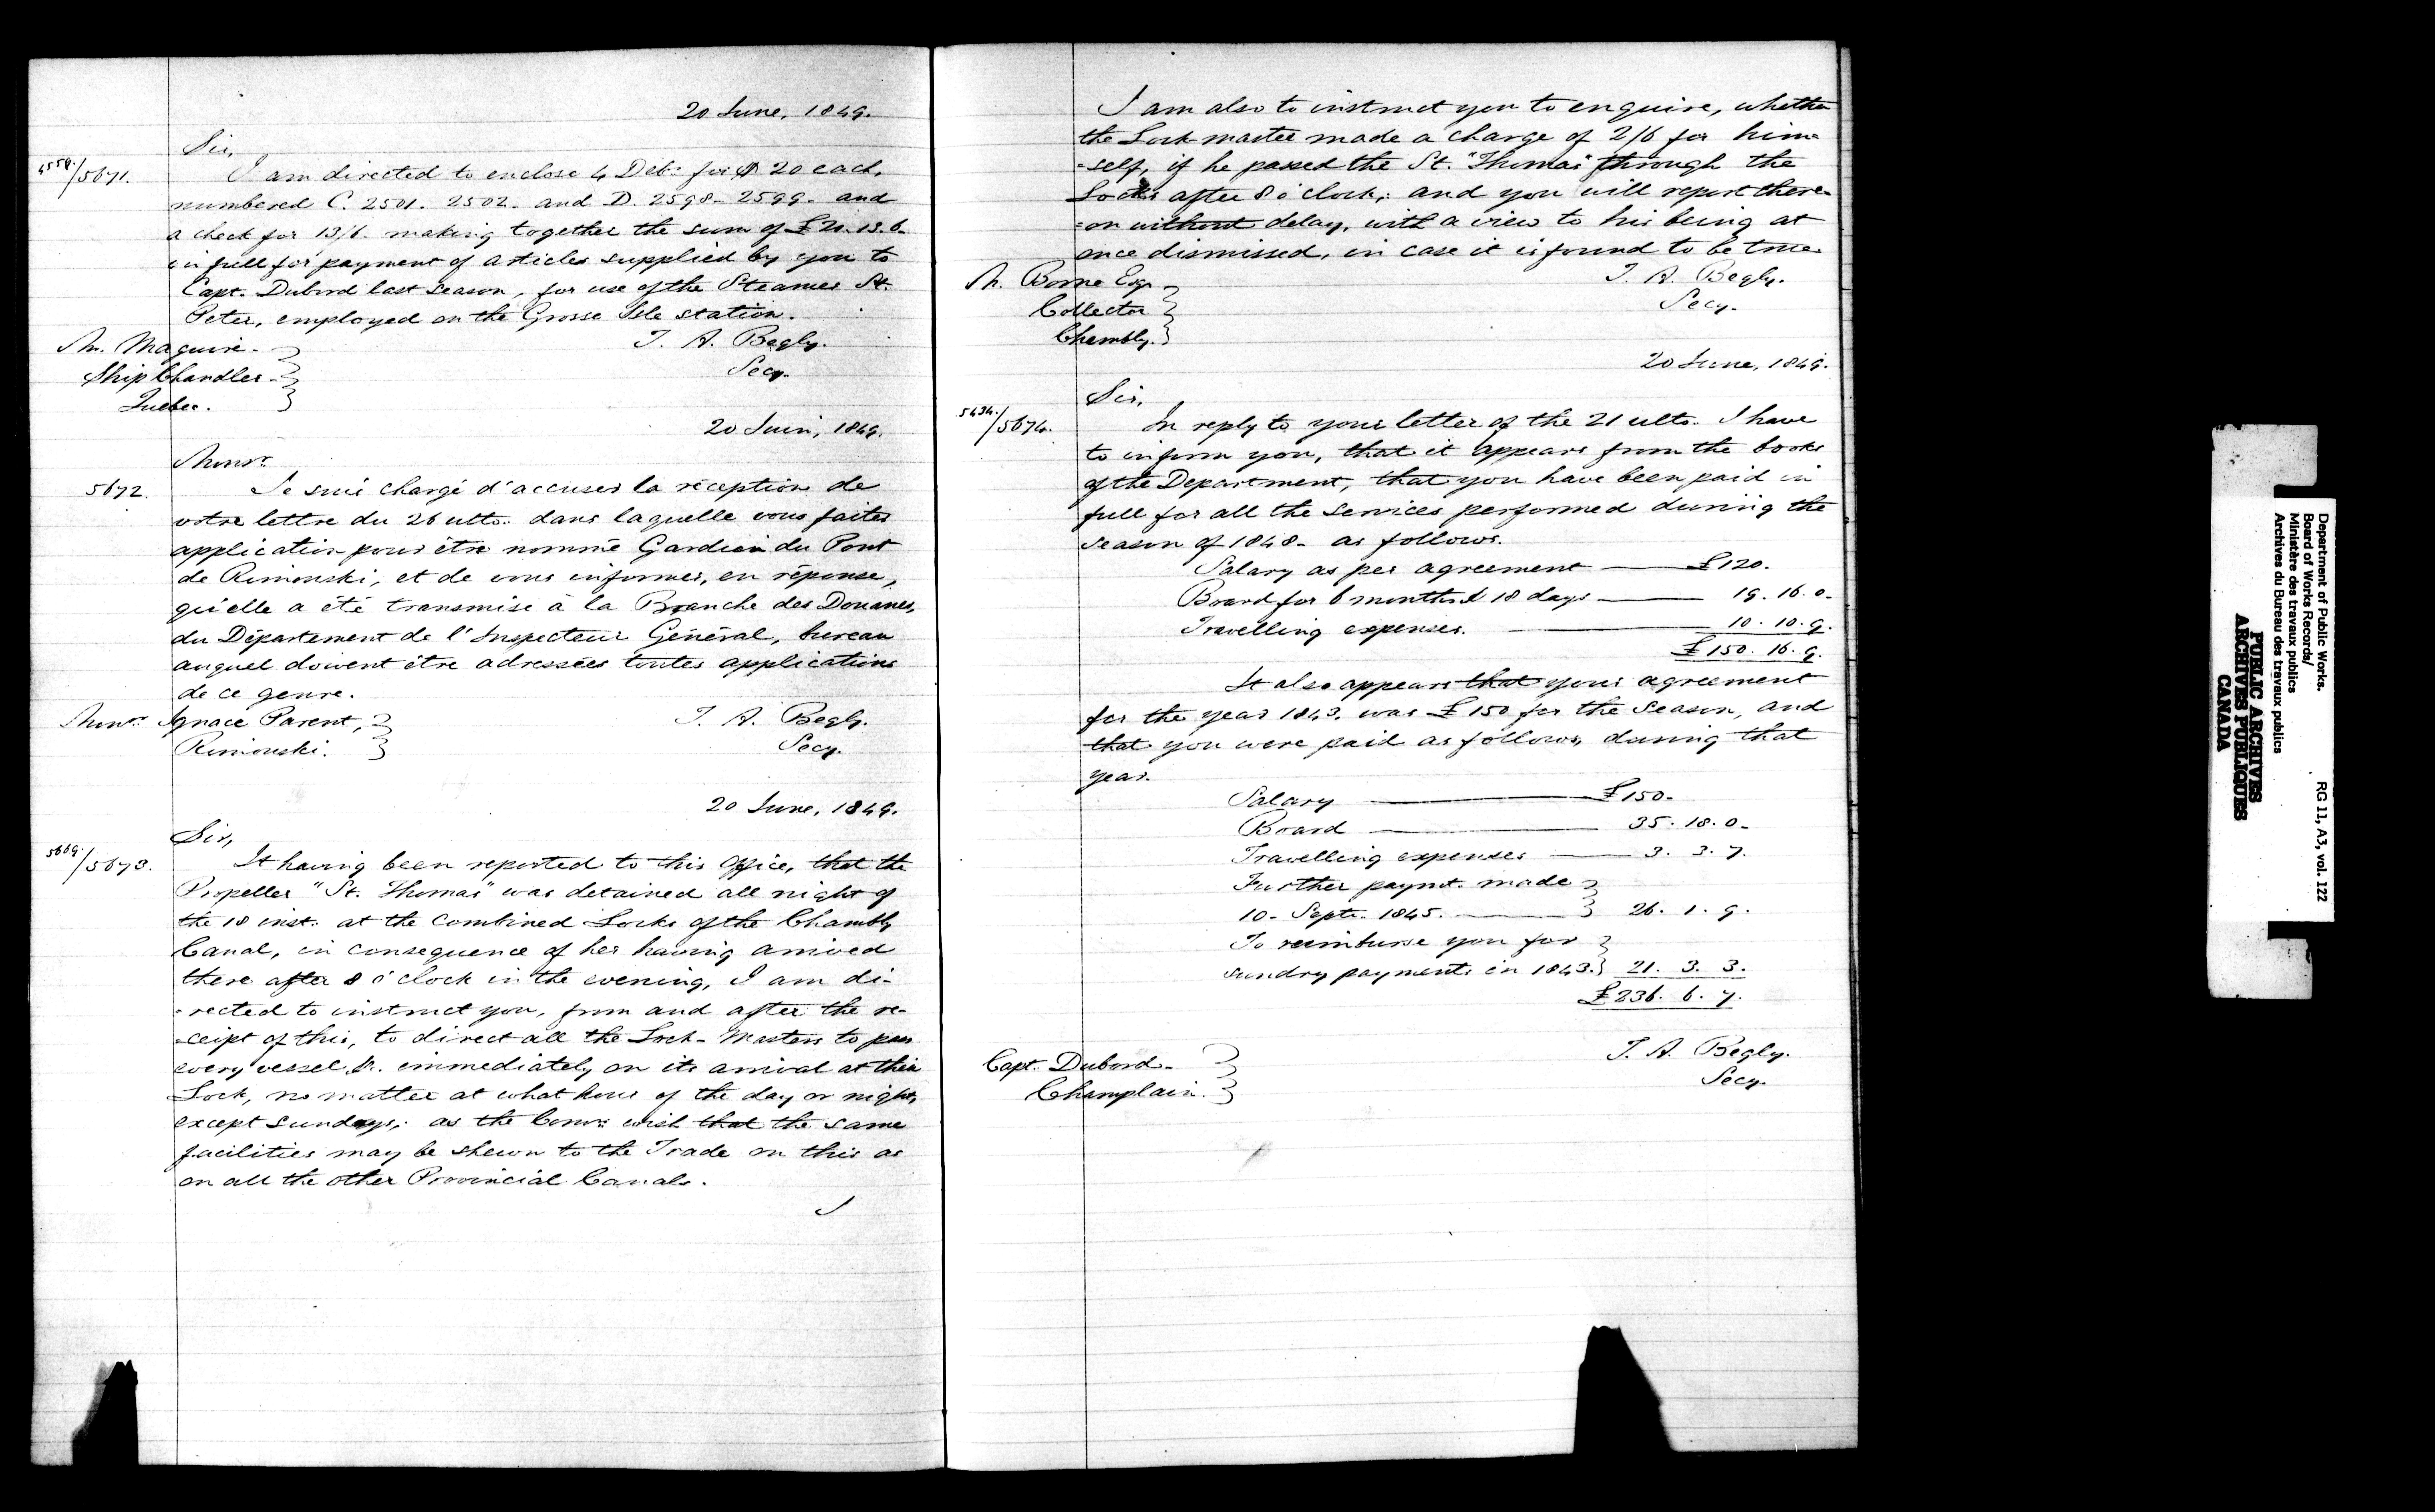 20 June, 1849.
Sir,
4559./5671. I am directed to enclose 4 Debs. for $ 20 each,
numbered C. 2501. 2502. and D. 2598. 2599. and
a check for 13/6. making together the sum of £20.13.6.
in full for payment of articles supplied by you to
Capt. Dubord last season, for use of the Steamer St.
Peter, employed on the Grosse Isle station.
M. Maguire.
T. A. Begly.
Ship Chandler.
Secy.
Quebec.
20 Juin, 1849.
Monsr.
5672. Je suis chargé d'accuser la réception de
votre lettre du 26 ulto. dans laquelle vous faites
application pour être nommé Gardien du Pont
de Rimouski, et de vous informer, en réponse,
qu'elle a été transmise à la Branche des Douanes,
du Département de l'Inspecteur Général, bureau
auquel doivent être adressées toutes applications
de ce genre.
Monsr. Ignace Parent,
T. A. Begly.
Rimouski.
Secy.
20 June, 1849.
Sir,
5669./5673. It having been reported to this Office, that the
Propeller "St. Thomas" was detained all night of
the 18 inst. at the Combined Locks of the Chambly
Canal, in consequence of her having arrived
there after 8 o'clock in the evening, I am di-
-rected to instruct you, from and after the re-
-ceipt of this, to direct all the Lock-Masters to pass
every vessel &c. immediately on its arrival at their
Lock, no matter at what hour of the day or night,
except Sundays; as the Comrs. wish that the same
facilities may be shewn to the Trade on this as
on all the other Provincial Canals.
I am also to instruct you to enquire, whether
the Lock-master made a charge of 2/6 for him-
-self, if he passed the St. "Thomas" through the
Locks after 8 o'clock; and you will report there-
-on without delay, with a view to his being at
once dismissed, in case it is found to be true.
M. Borne Esqr.
T. A. Begly.
Collector
Secy.
Chambly.
20 June, 1849.
Sir,
5434./5674. In reply to your letter of the 21 ulto. I have
to inform you, that it appears from the books
of the Department, that you have been paid in
full for all the services performed during the
season of 1848. as follows.
Salary as per agreement £120.
Board for 6 months & 18 days 19. 16. 0.
Travelling expenses. 10. 10. 9.
£150. 16. 9.
It also appears that your agreement
for the year 1843, was £150 for the Season, and
that you were paid as follows, during that
year.
Salary £150.
Board 35. 18. 0.
Travelling expenses 3. 3. 7.
Further paymt. made
10. Septr. 1845. 26. 1. 9.
To reimburse you for
sundry payments in 1843. 21. 3. 3.
£236. 6. 7.
T. A. Begly.
Capt. Dubord.
Secy.
Champlain.
Department of Public Works.
Board of Works Records/
Ministère des travaux publics
Archives du Bureau des travaux publics
RG 11, A3, vol. 122
PUBLIC ARCHIVES
ARCHIVES PUBLIQUES
CANADA